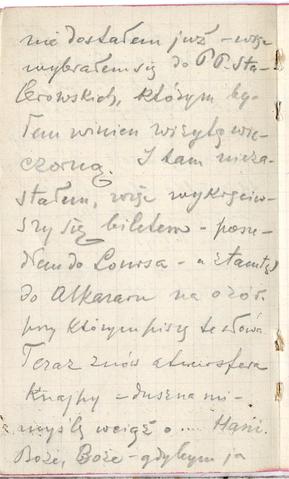 nie dostałem już – więc
wybrałem się do PP. Sta-
berowskich, którym by-
łem winien wizytę wie-
czorną. I tam nieza-
stałem, więc wykręciw-
szy się biletem – posze-
dłem do Loursa – a stamtąd
do Alkazaru na
przy którym piszę te słowa
Teraz znów atmosfera
Knajpy – duszna mi –
myślę wciąż o .... Hani.
Boże, Boże – gdybym ja